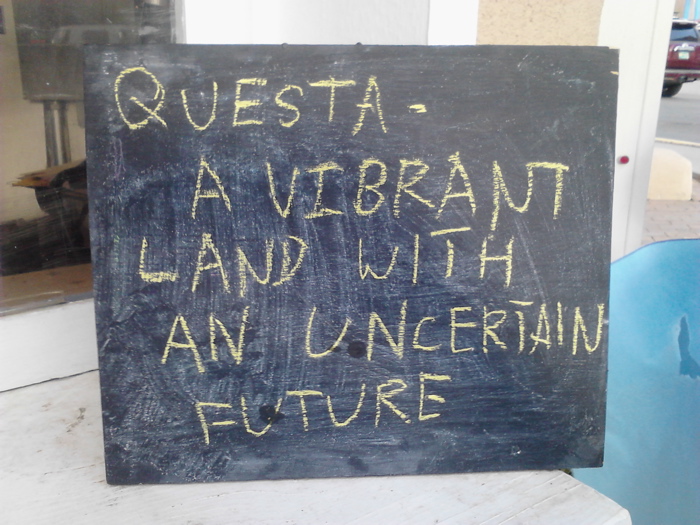 QUESTA -
A VIBRANT
LAND WITH
AN UNCERTAIN
FUTURE